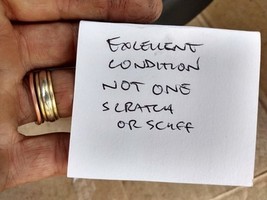 EXCELLENT
CONDITION
NOT ONE
SCRATCH
OR SCUFF